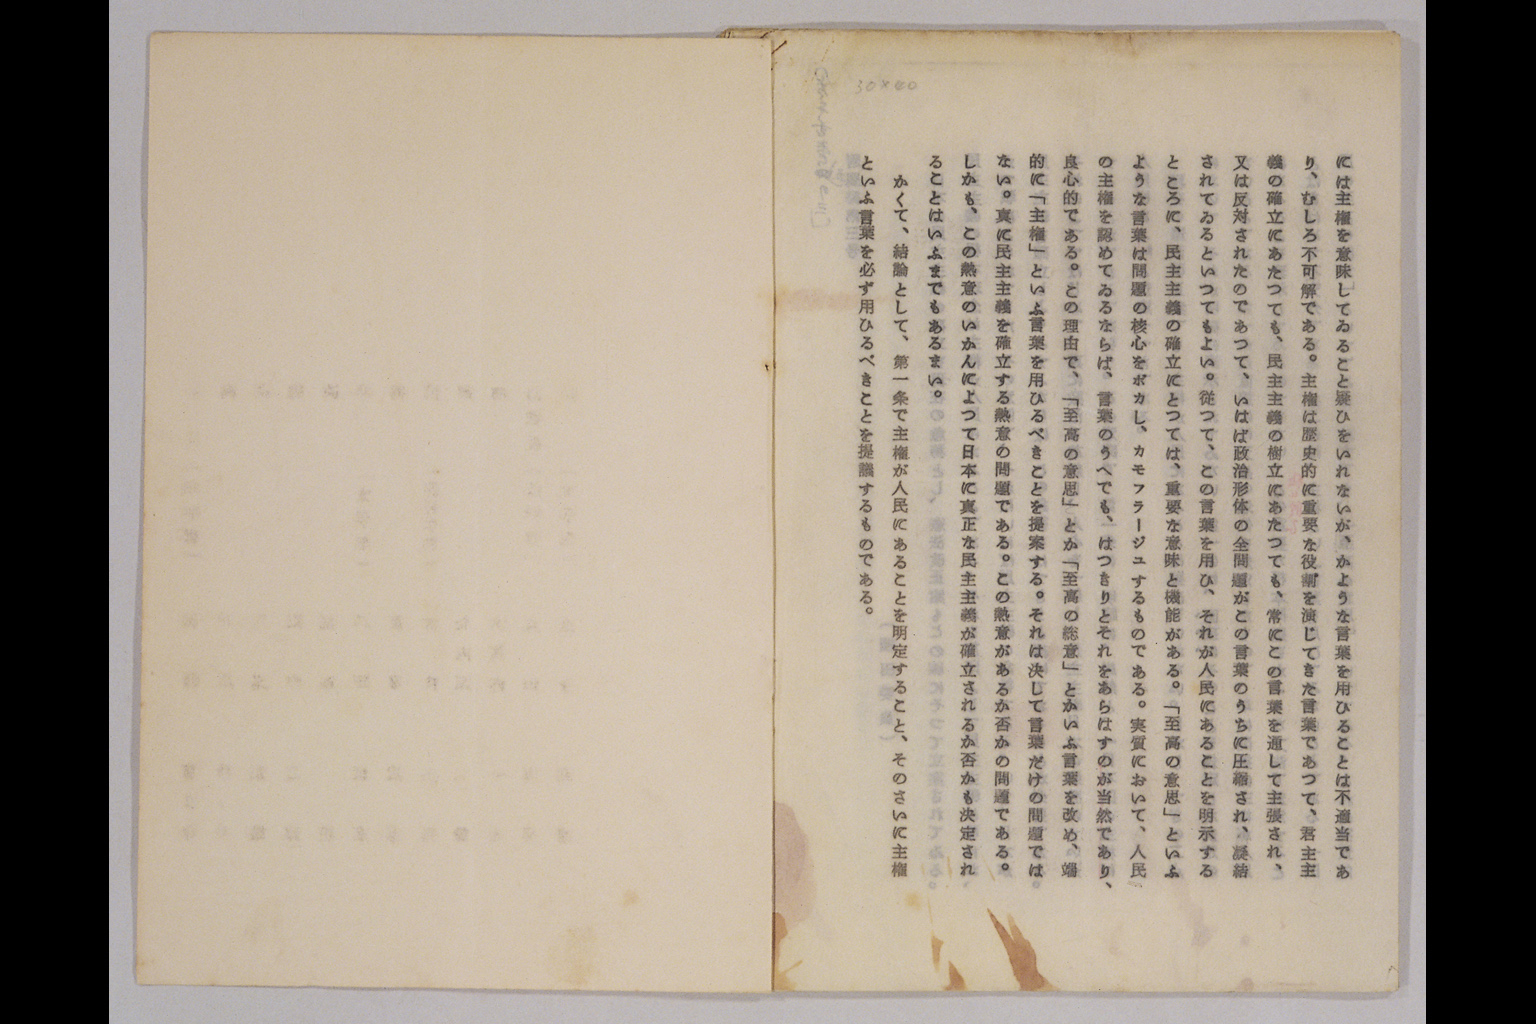 には主権を意味してゐること疑ひをいれないが、かような言葉を用ひることは不適当であ
り、むしろ不可解である。主権は歴史的に重要な役割を演じてきた言葉であつて、君主主
義の確立にあたつても、民主主義の樹立にあたつても、常にこの言葉を通して主張され、
又は反対されたのであつて、いはば政治形体の全問題がこの言葉のうちに圧縮され、凝結
されてゐるといつてもよい。従つて、この言葉を用ひ、それが人民にあることを明示する
ところに、民主主義の確立にとつては、重要な意味と機能がある。「至高の意思」といふ
ような言葉は問題の核心をボカし、カモフラージユするものである。実質において、人民
の主権を認めてゐるならば、言葉のうへでも、はつきりとそれをあらはすのが当然であり、
良心的である。この理由で、「至高の意思」とか「至高の総意」とかいふ言葉を改め、端
的に「主権」といふ言葉を用ひるべきことを提案する。それは決して言葉だけの問題では
ない。真に民主主義を確立する熱意の問題である。この熱意があるか否かの問題である。
しかも、この熱意のいかんによつて日本に真正な民主主義が確立されるか否かも決定され
ることはいふまでもあるまい。
かくて、結論として、第一条で主権が人民にあることを明定すること、そのさいに主権
といふ言葉を必ず用ひるべきことを提議するものである。
30×40